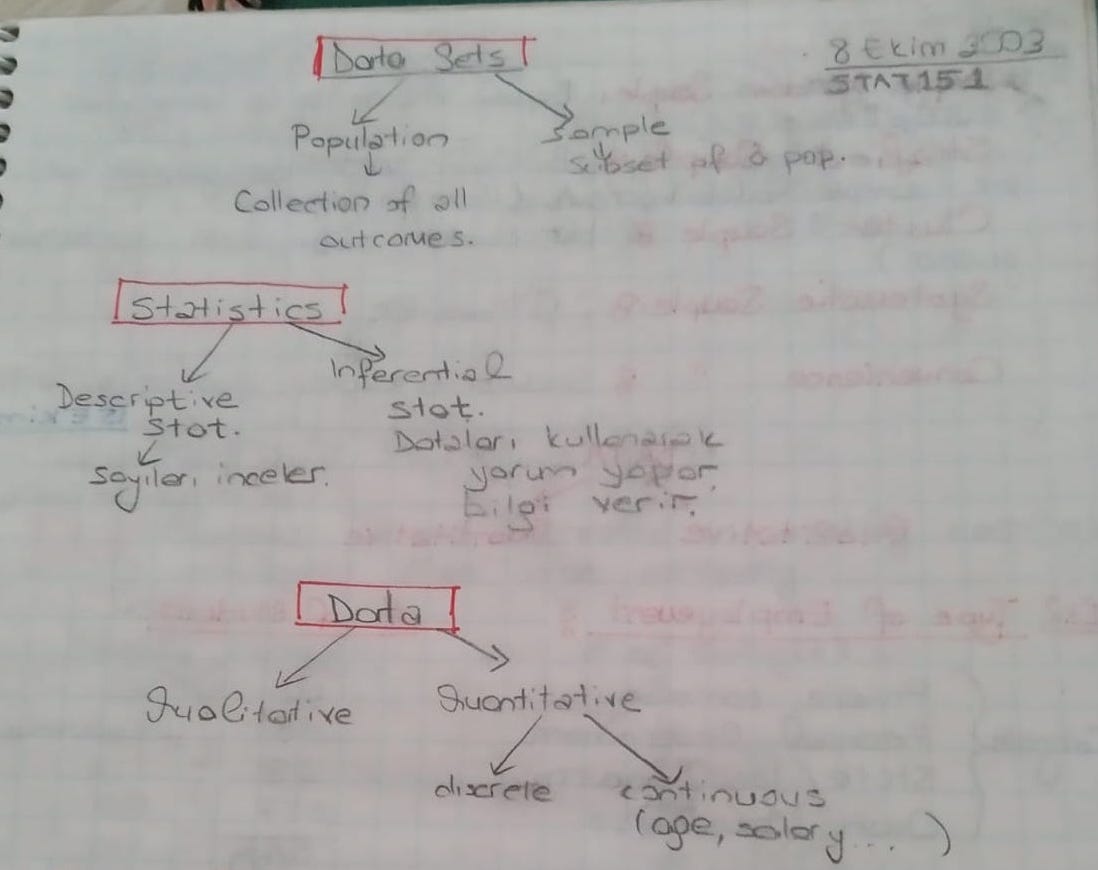 8 Ekim 2003
STAT151
Data Sets
Population
Sample
subset of a pop.
Collection of all
outcomes.
Statistics
Descriptive
Stat.
sayıları inceler.
Inferential
stat.
Dataları kullanarak
yorum yapar,
bilgi verir.
Data
Qualitative
Quantitative
discrete
continuous
(age, salary... )